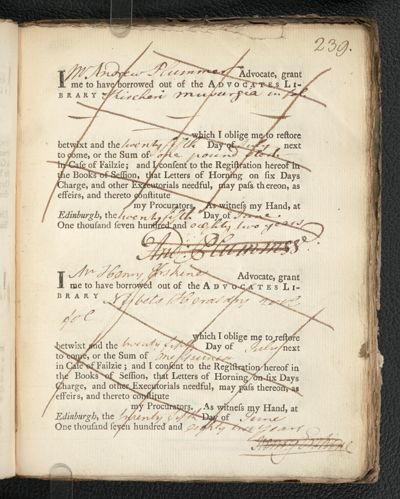 239.
I Mr Andrew Plummer Advocate, grant
me to have borrowed out of the ADVOCATES LI-
BRARY Kircheri musurgia in fol
which I oblige me to reſtore
betwixt and the twenty fifth Day of July next
to come, or the Sum of one pound Sterle
in Caſe of Failzie; and I conſent to the Regiſtration hereof in
the Books of Seſſion, that Letters of Horning on ſix Days
Charge, and other Executorials needful, may paſs thereon, as
effeirs, and thereto conſtitute
my Procurators. As witneſs my Hand, at
Edinburgh, the twenty fifth Day of June
One thouſand ſeven hundred and eighty two years
And: Plummer.
I Mr Henry Erskine Advocate, grant
me to have borrowed out of the ADVOCATES LI-
BRARY Nisbets Heraldry
fol
which I oblige me to reſtore
betwixt and the twenty fifth Day of July next
to come, or the Sum of
in Caſe of Failzie; and I conſent to the Regiſtration hereof in
the Books of Seſſion, that Letters of Horning on ſix Days
Charge, and other Executorials needful, may paſs thereon, as
effeirs, and thereto conſtitute
my Procurators. As witneſs my Hand, at
Edinburgh, the twenty fifth Day of June
One thouſand ſeven hundred and eighty two years
Henry Erskine